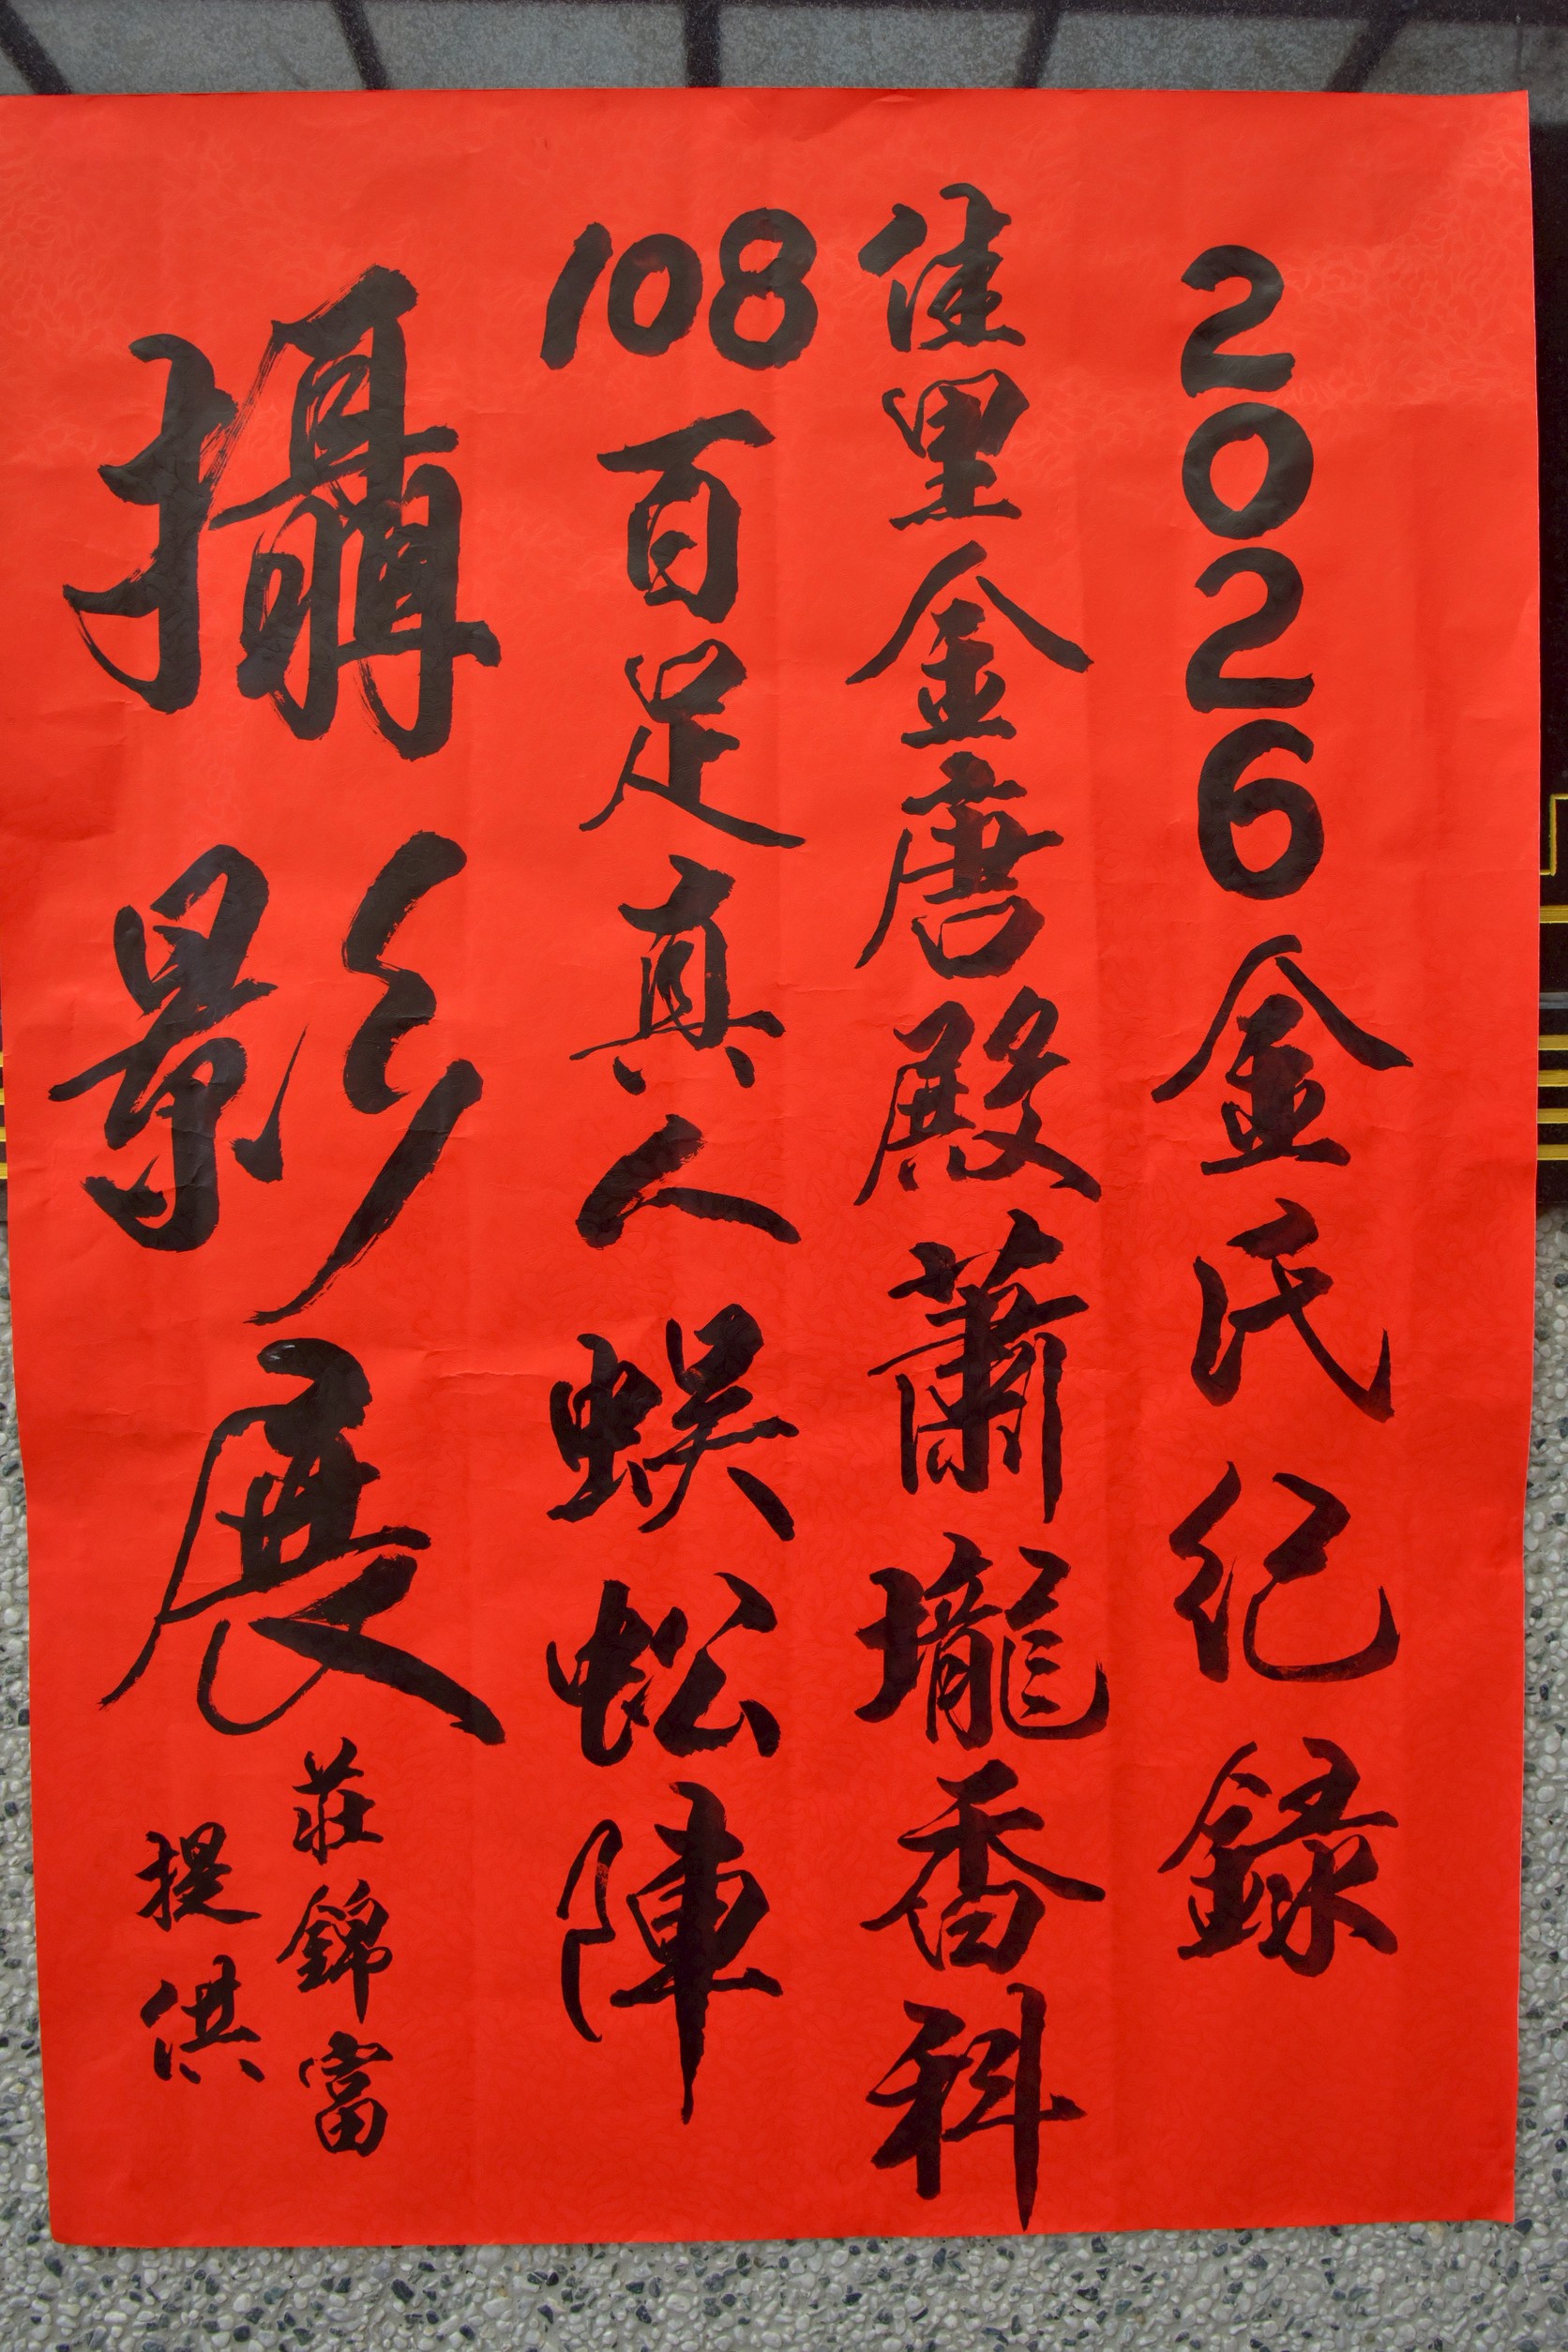 2026金氏紀錄
佳里金唐殿蕭壠香科
108百足真人蜈蚣陣
攝影展
莊錦富
提供